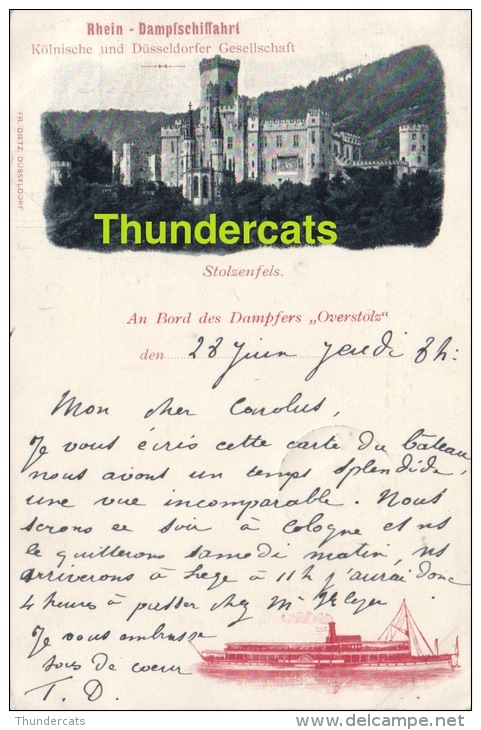 Rhein - Dampfschiffahrt
Kölnische und Düsseldorfer Gesellschaft
FR. DIETZ, DÜSSELDORF
Thundercats
Stolzenfels.
An Bord des Dampfers „Overstolz“
den 28 juin jeudi 8h:
Mon cher Carolus,
Je vous écris cette carte du bâteau,
nous avons un temps splendide,
une vue incomparable. Nous
serons ce soir à Cologne et ns
le quitterons samedi matin, ns
arriverons à Liege à 11h j'aurai donc
4 heures à passer chez Mr
Je vous embrasse
tous de coeur
T. D.
Thundercats
www.delcampe.net